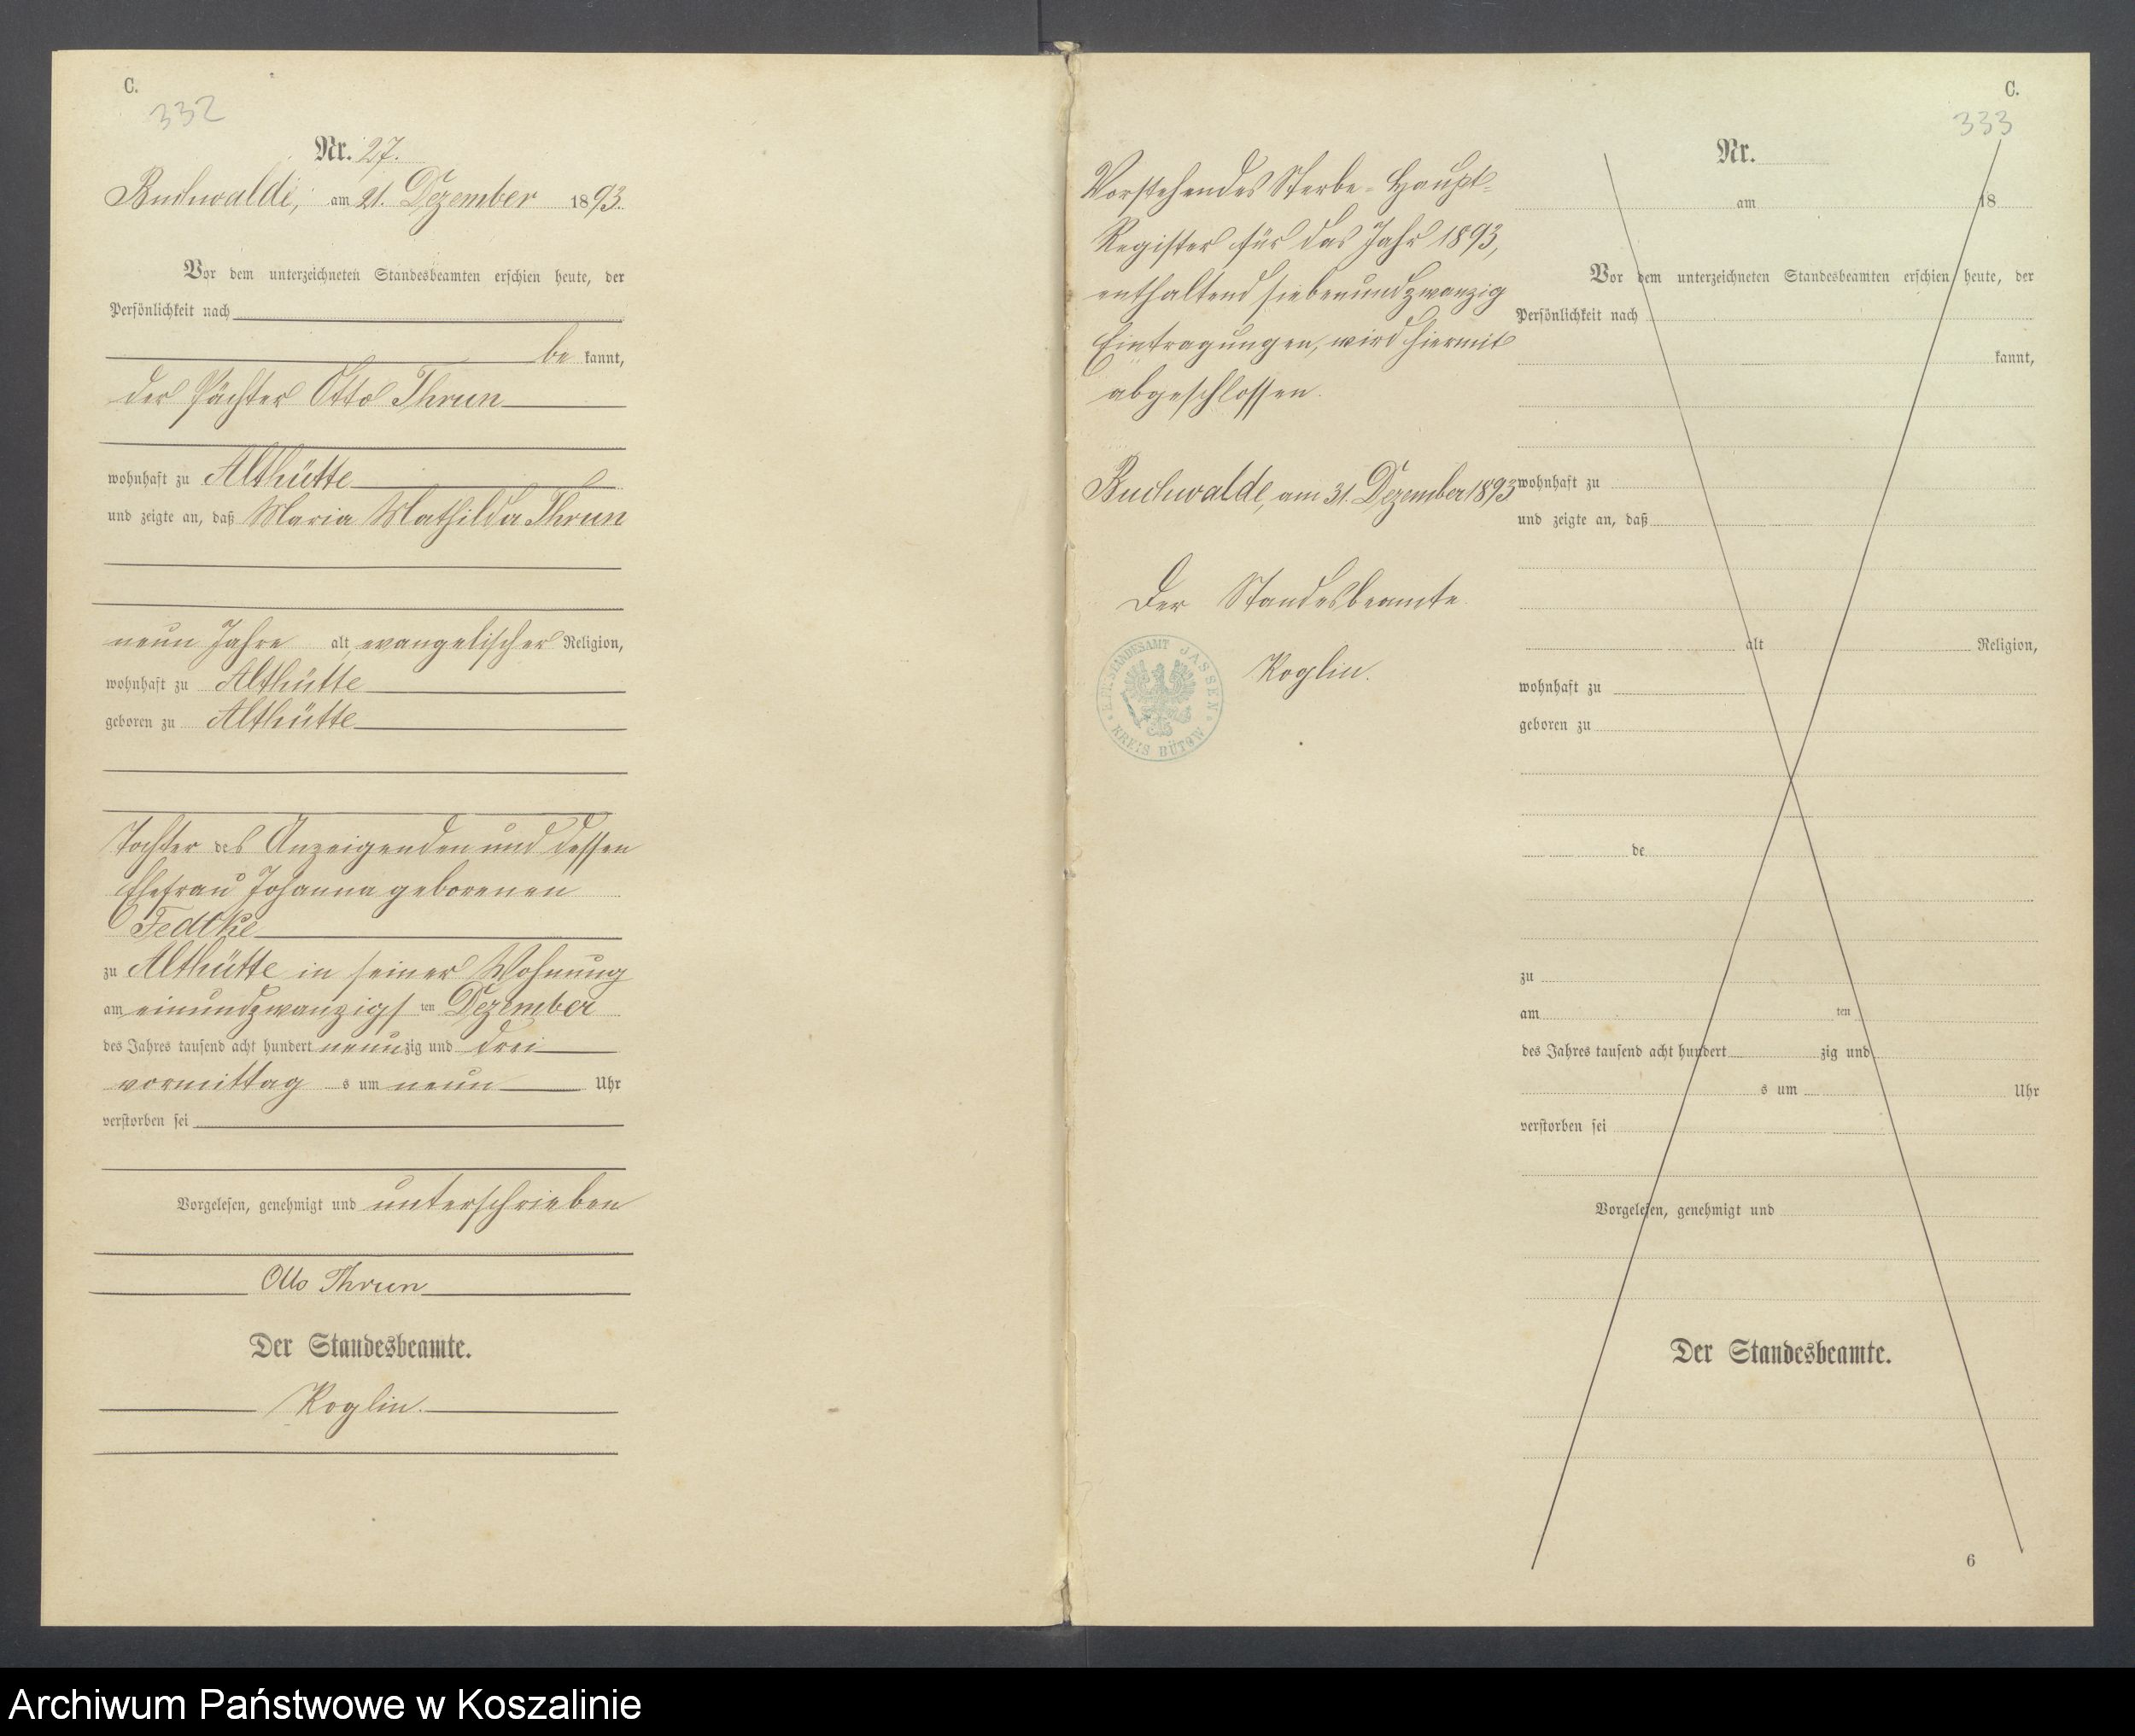 C.
332
Nr. 27.
Buchwalde, am 21. Dezember 1893.
Vor dem unterzeichneten Standesbeamten erschien heute, der
Persönlichkeit nach
be kannt,
der Pächter Otto Thrun
wohnhaft zu Althütte
und zeigte an, daß Maria Mathilda Thrun
neun Jahre alt, evangelischer Religion,
wohnhaft zu Althütte
geboren zu Althütte
Tochter des Anzeigenden und dessen
Ehefrau Johanna geborenen
Fedtke
zu Althütte in seiner Wohnung
am einundzwanzigsten Dezember
des Jahres tausend acht hundert neunzig und drei
vormittag s um neun Uhr
verstorben sei
Vorgelesen, genehmigt und unterschrieben
Otto Thrun
Der Standesbeamte.
Koglin.
Vorstehendes Sterbe-Haupt-
Register für das Jahr 1893,
enthaltend siebenundzwanzig
Eintragungen, wird hiermit
abgeschlossen.
Buchwalde, am 31. Dezember 1893
Der Standesbeamte
Koglin.
K. PR. STANDESAMT JASSEN
KREIS BÜTOW
C.
333
Nr.
am 18
Vor dem unterzeichneten Standesbeamten erschien heute, der
Persönlichkeit nach
kannt,
wohnhaft zu
und zeigte an, daß
alt Religion,
wohnhaft zu
geboren zu
de
zu
am ten
des Jahres tausend acht hundert zig und
s um Uhr
verstorben sei
Vorgelesen, genehmigt und
Der Standesbeamte.
6
Archiwum Państwowe w Koszalinie